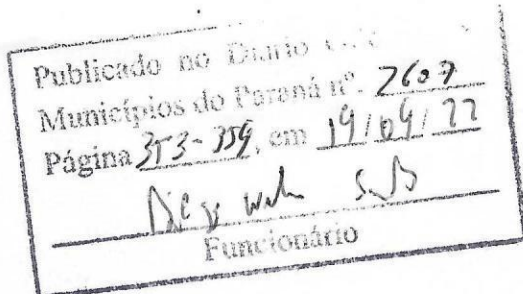 Publicado no Diario
Municípios do Paraná nº. 2607
Página 353-354, em 19/09/22
Funcionário